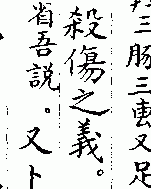 三豚三 又足
殺傷之義。
省吾説。又卜